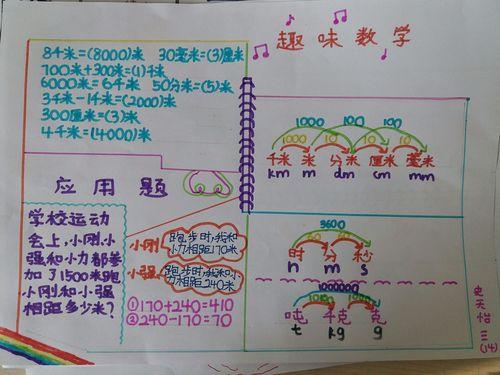 趣味数学
8千米=(8000)米 30毫米=(3)厘米
700米+300米=(1)千米
6000米=6千米 50分米=(5)米
3千米-1千米=(2000)米
300厘米=(3)米
4千米=(4000)米
1000 100 100
1000 10 10 10
千米 米 分米 厘米 毫米
km m dm cm mm
应用题
学校运动
会上,小刚,小
强和小力都参
加了1500米跑
小刚和小强
相距多少米?
小刚 跑步时,我和
小力相距170米
小强 跑步时,我和小
力相距240米
①170+240=410
②240-170=70
3600
60 60
时 分 秒
h m s
1000000
1000 1000
吨 千克 克
t kg g
三(14)